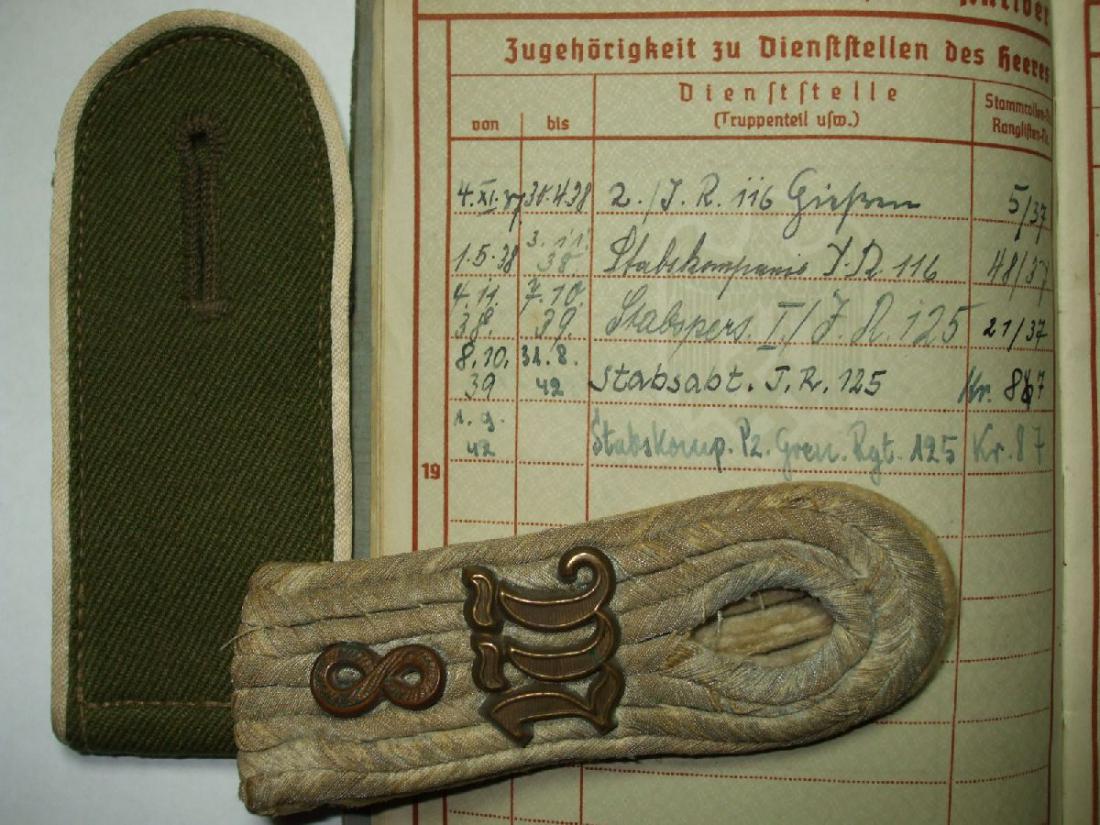 Zugehörigkeit zu Dienststellen des Heeres
von bis Dienststelle
(Truppenteil usw.) Stammrollen-Nr.
Ranglisten-Nr.
4.XI.37 30.4.38 2./J.R. 116 Gießen 5/37
1.5.38 3.11.38 Stabskompanie J.R. 116 48/37
4.11.38. 7.10.39 Stabspers. I/J.R. 125 21/37
8.10.39 31.8.42 Stabsabt. J.R. 125 Kr. 87
1.9.42 Stabskomp. Pz. Gren. Rgt. 125 Kr. 87
19
8